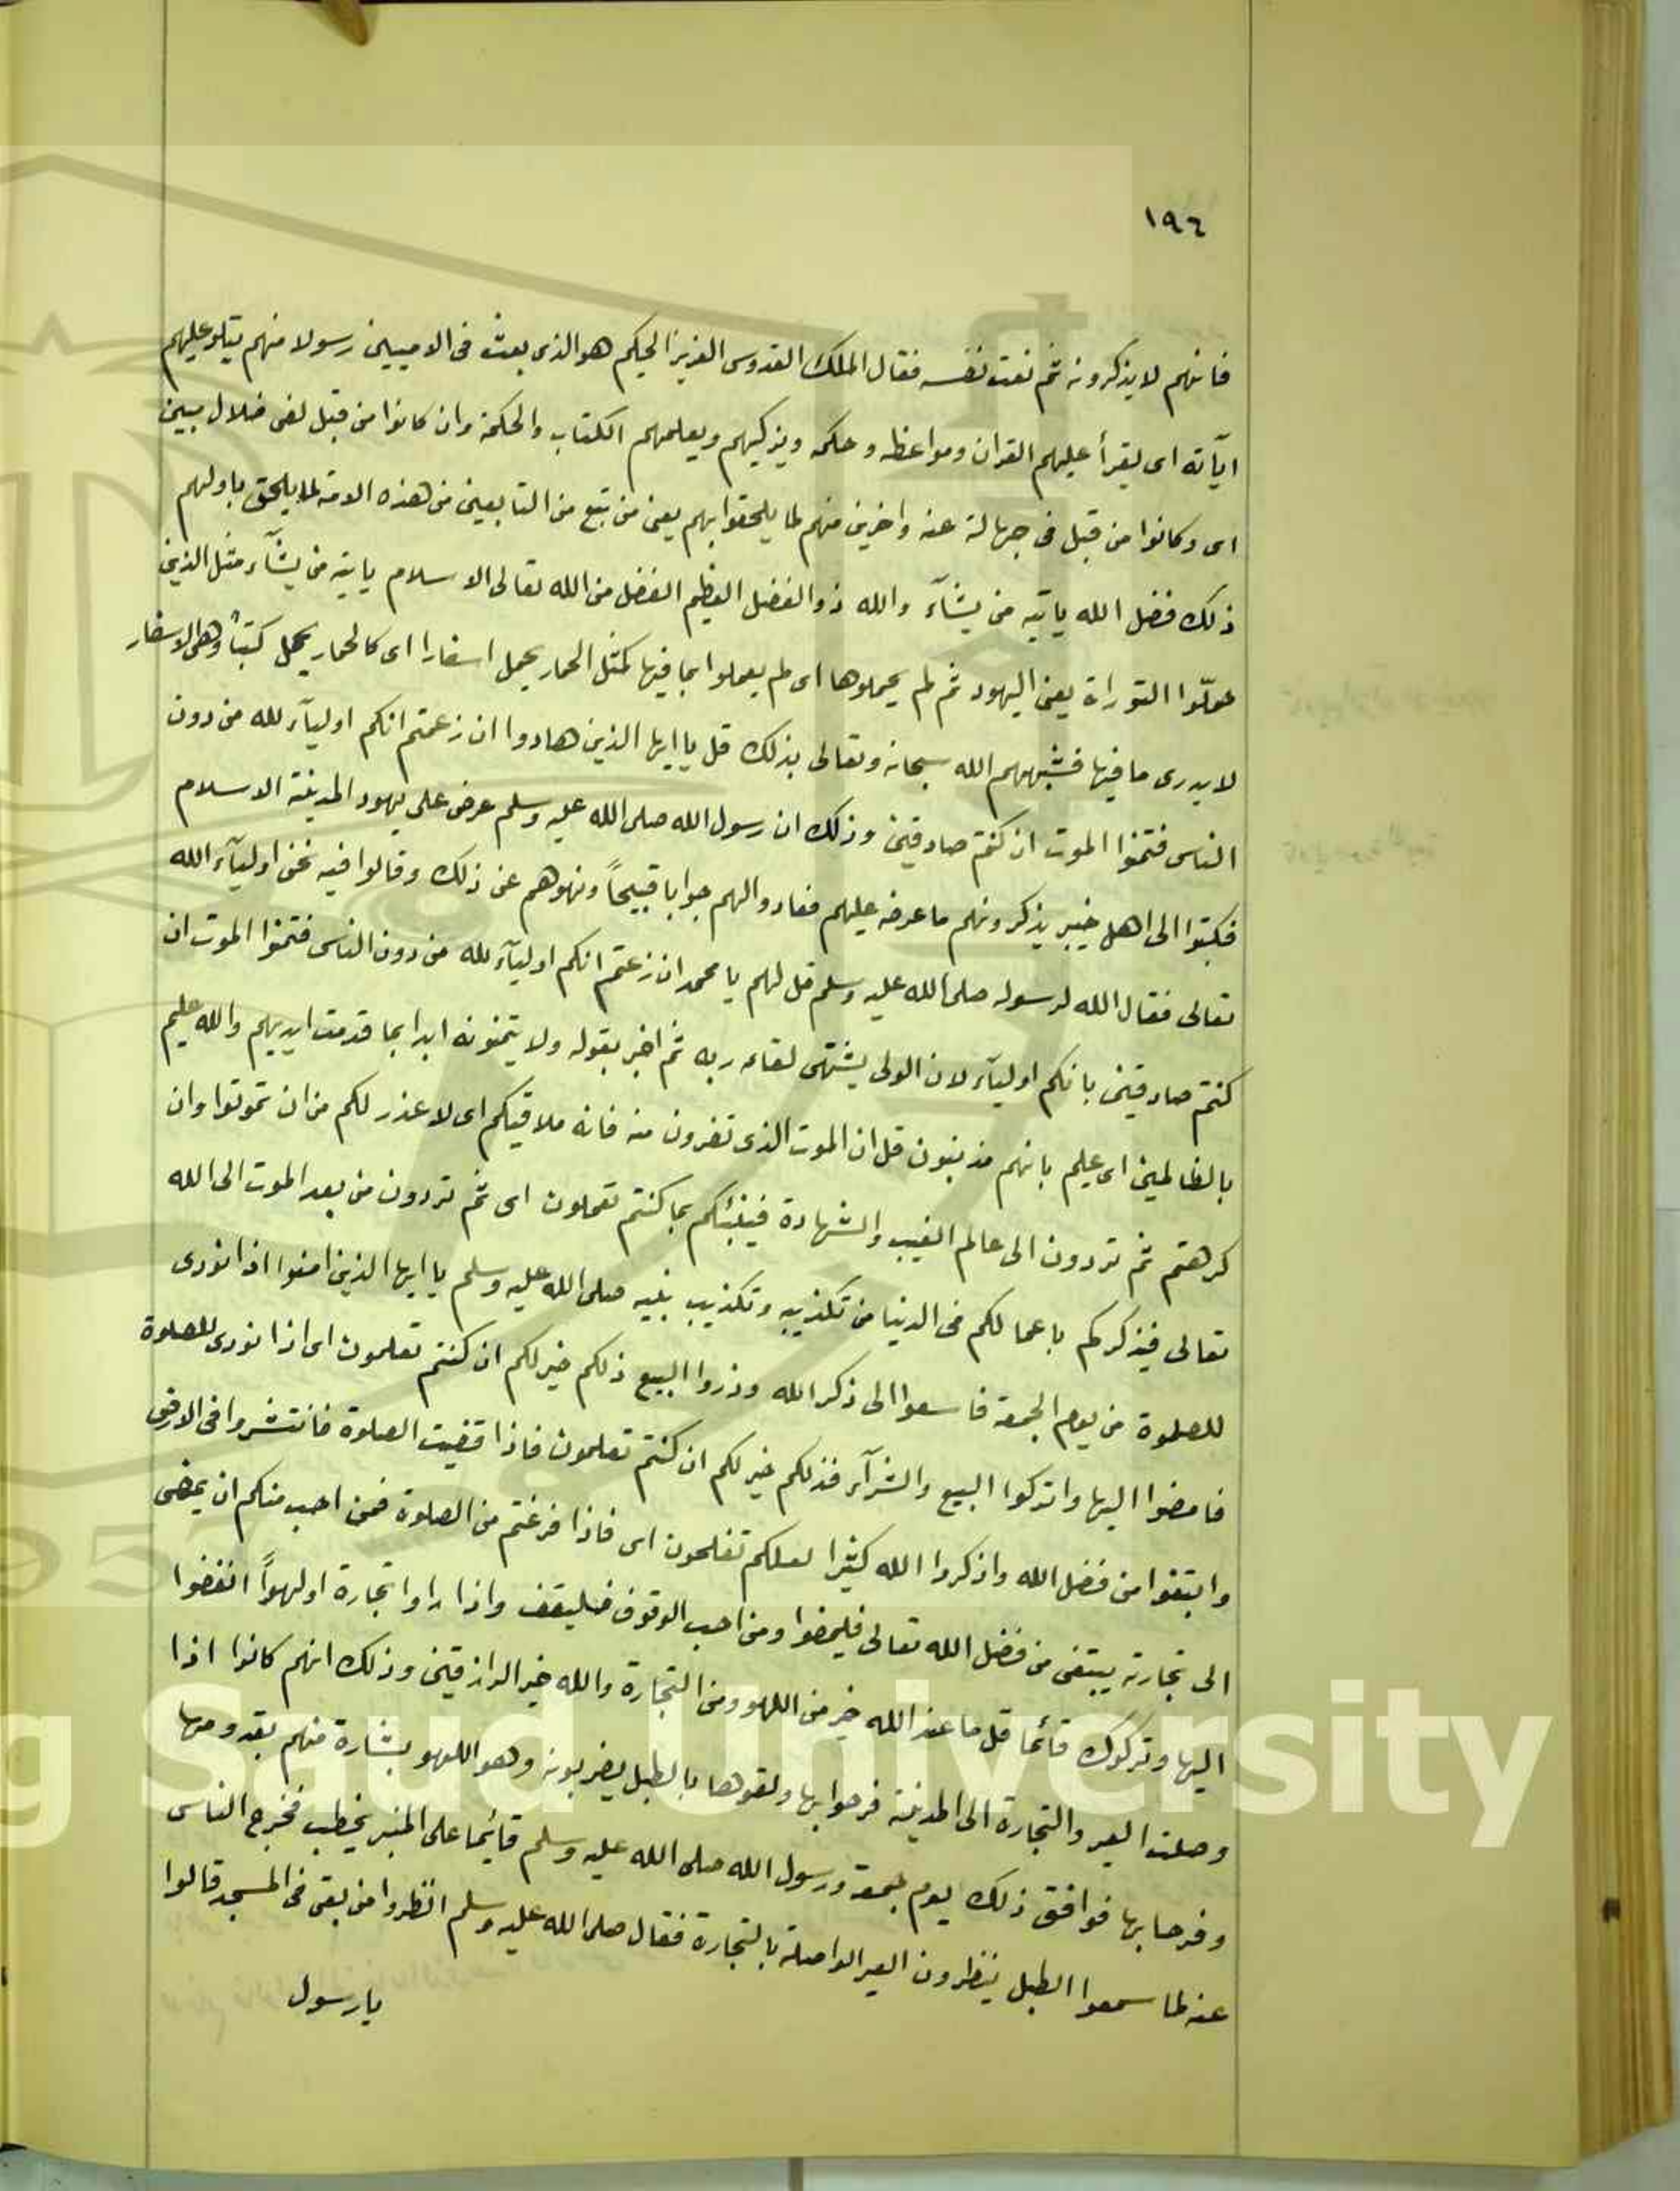 ١٩٦
فانهم لا يذكرونه ثم نعت نفسه فقال الملك القدوس العزيز الحكيم هو الذى بعث فى الاميين رسولا منهم يتلو عليهم
اياته اى يقرأ عليهم القران ومواعظه وحكمه ويزكيهم ويعلمهم الكتاب والحكمة وان كانوا من قبل لفى ضلال مبين
اى وكانوا من قبل فى جهالة عنه واخرين منهم لما يلحقوا بهم يعنى من تبع من التابعين من هذه الامة لما يلحق باولهم
ذلك فضل الله ياتيه من يشآء والله ذو الفضل العظيم الفضل من الله تعالى الاسلام ياتيه من يشآء مثل الذين
حملّوا التوراة يعنى اليهود ثم لم يحملوها اى لم يعملوا بما فيها كمثل الحمار يحمل اسفارا اى كالحمار يحمل كتبا وهى الاسفار
لا يدرى ما فيها فشبههم الله سبحانه وتعالى بذلك قل يا ايها الذين هادوا ان زعمتم انكم اوليآء لله من دون
الناس فتمنوا الموت ان كنتم صادقين وذلك ان رسول الله صلى الله عليه وسلم عرض على يهود المدينة الاسلام
فكتبوا الى اهل خيبر يذكرونهم ما عرضه عليهم فعادوا لهم جوابا قبيحاً ونهوهم عن ذلك وقالوا فيه نحن اوليآء الله
تعالى فقال الله لرسوله صلى الله عليه وسلم قل لهم يا محمد ان زعمتم انكم اوليآء لله من دون الناس فتمنوا الموت ان
كنتم صادقين بانكم اوليآء لان الولى يشتهى لقاء ربه ثم اخبر بقوله ولا يتمنونه ابدا بما قدمت ايديهم والله عليم
بالظالمين اى عليم بانهم مذنبون قل ان الموت الذى تفرون منه فانه ملاقيكم اى لا عذر لكم من ان تموتوا وان
كرهتم ثم تردون الى عالم الغيب والشهادة فينبئكم بما كنتم تعملون اى ثم تردون من بعد الموت الى الله
تعالى فيذكركم باعمالكم فى الدنيا من تكذيبه وتكذيب نبيه صلى الله عليه وسلم يا ايها الذين امنوا اذا نودى
للصلوة من يوم الجمعة فاسعوا الى ذكر الله وذروا البيع ذلكم خير لكم ان كنتم تعلمون اى اذا نودى للصلوة
فامضوا اليها واتركوا البيع والشرآء فذلكم خير لكم ان كنتم تعلمون فاذا قضيت الصلوة فانتشروا فى الارض
وابتغوا من فضل الله واذكروا الله كثيرا لعلكم تفلحون اى فاذا فرغتم من الصلوة فمن احب منكم ان يمضى
الى تجارته يبتغى من فضل الله تعالى فليمضوا ومن احب الوقوف فليقف واذا راوا تجارة او لهواً انفضوا
اليها وتركوك قائما قل ما عند الله خير من اللهو ومن التجارة والله خير الرازقين وذلك انهم كانوا اذا
وصلت العير والتجارة الى المدينة فرحوا بها ولقوها بالطبل يضربونه وهو اللهو بشارة منهم بقدومها
وفرحا بها فوافق ذلك يوم جمعة ورسول الله صلى الله عليه وسلم قائما على المنبر يخطب فخرج الناس
عنه لما سمعوا الطبل ينظرون العير الواصلة بالتجارة فقال صلى الله عليه وسلم انظروا من بقى فى المسجد قالوا
يا رسول
g Saud University
957